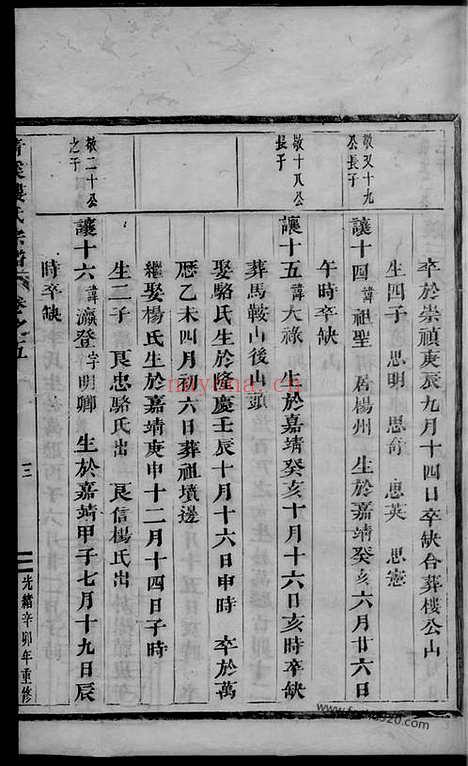 卒於崇禎庚辰九月十四日卒缺合葬樓公山
生四子 思明 思奇 思英 思憲
敬又十九公長子
讓十四 諱祖聖 居楊州 生於嘉靖癸亥六月廿六日
午時卒缺
敬十八公長子
讓十五 諱大祿 生於嘉靖癸亥十月十六日亥時卒缺
葬馬鞍山後山頭
娶駱氏生於隆慶壬辰十月十六日申時 卒於萬
厯乙未四月初六日葬祖墳邊
繼娶楊氏生於嘉靖庚申十二月十四日子時
生二子 良忠駱氏出 良信楊氏出
敬二十公之子
讓十六 諱瀛登字明卿 生於嘉靖甲子七月十九日辰
時卒缺
樓氏宗譜 卷之五
三
光緒辛卯年重修